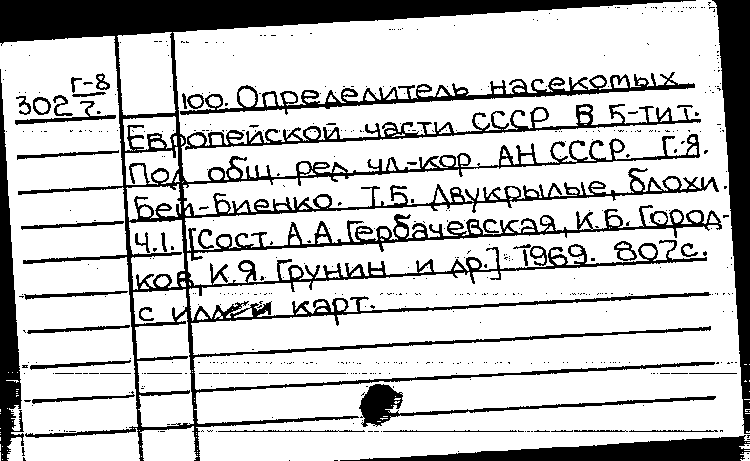 302 Г-8/7. 100. Определитель насекомых
Европейской части СССР В 5-ти т.
Под общ. ред. чл.-кор. АН СССР. Г.Я.
Бей-Биенко. Т.5. Двукрылые, блохи.
Ч.1. [Сост. А.А. Гербачевская, К.Б. Город-
ков, К.Я. Грунин и др.] 1969. 807с.
с илл и карт.